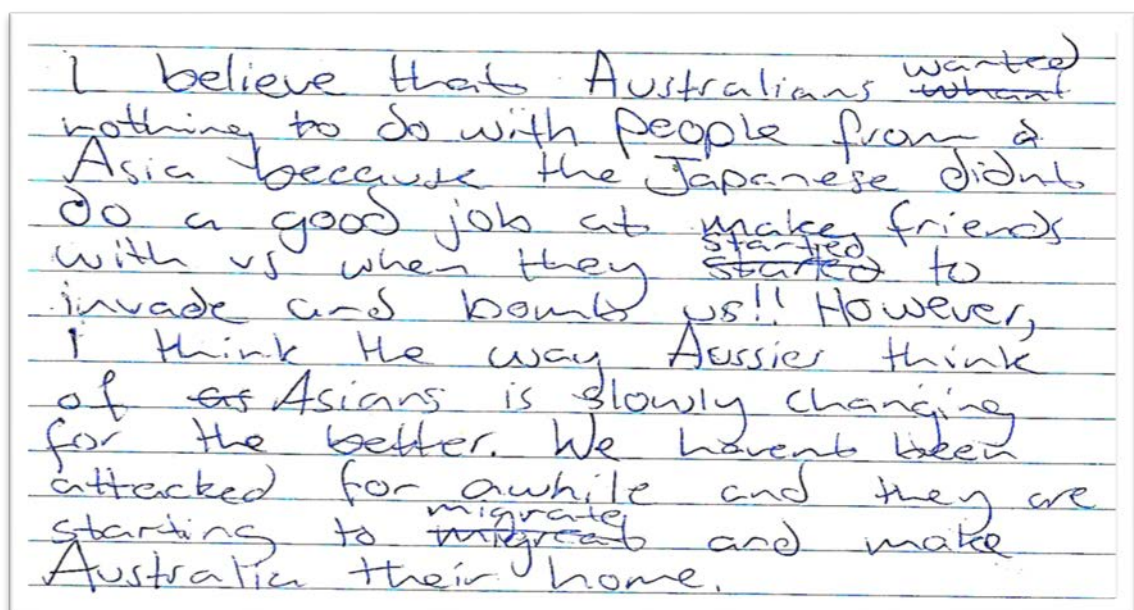 I believe that Australians wanted
nothing to do with people from a
Asia because the Japanese didnt
do a good job at make friends
with us when they started to
invade and bomb us!! However,
I think the way Aussies think
of Asians is slowly changing
for the better. We havent been
attacked for awhile and they are
starting to migrate and make
Australia their home.